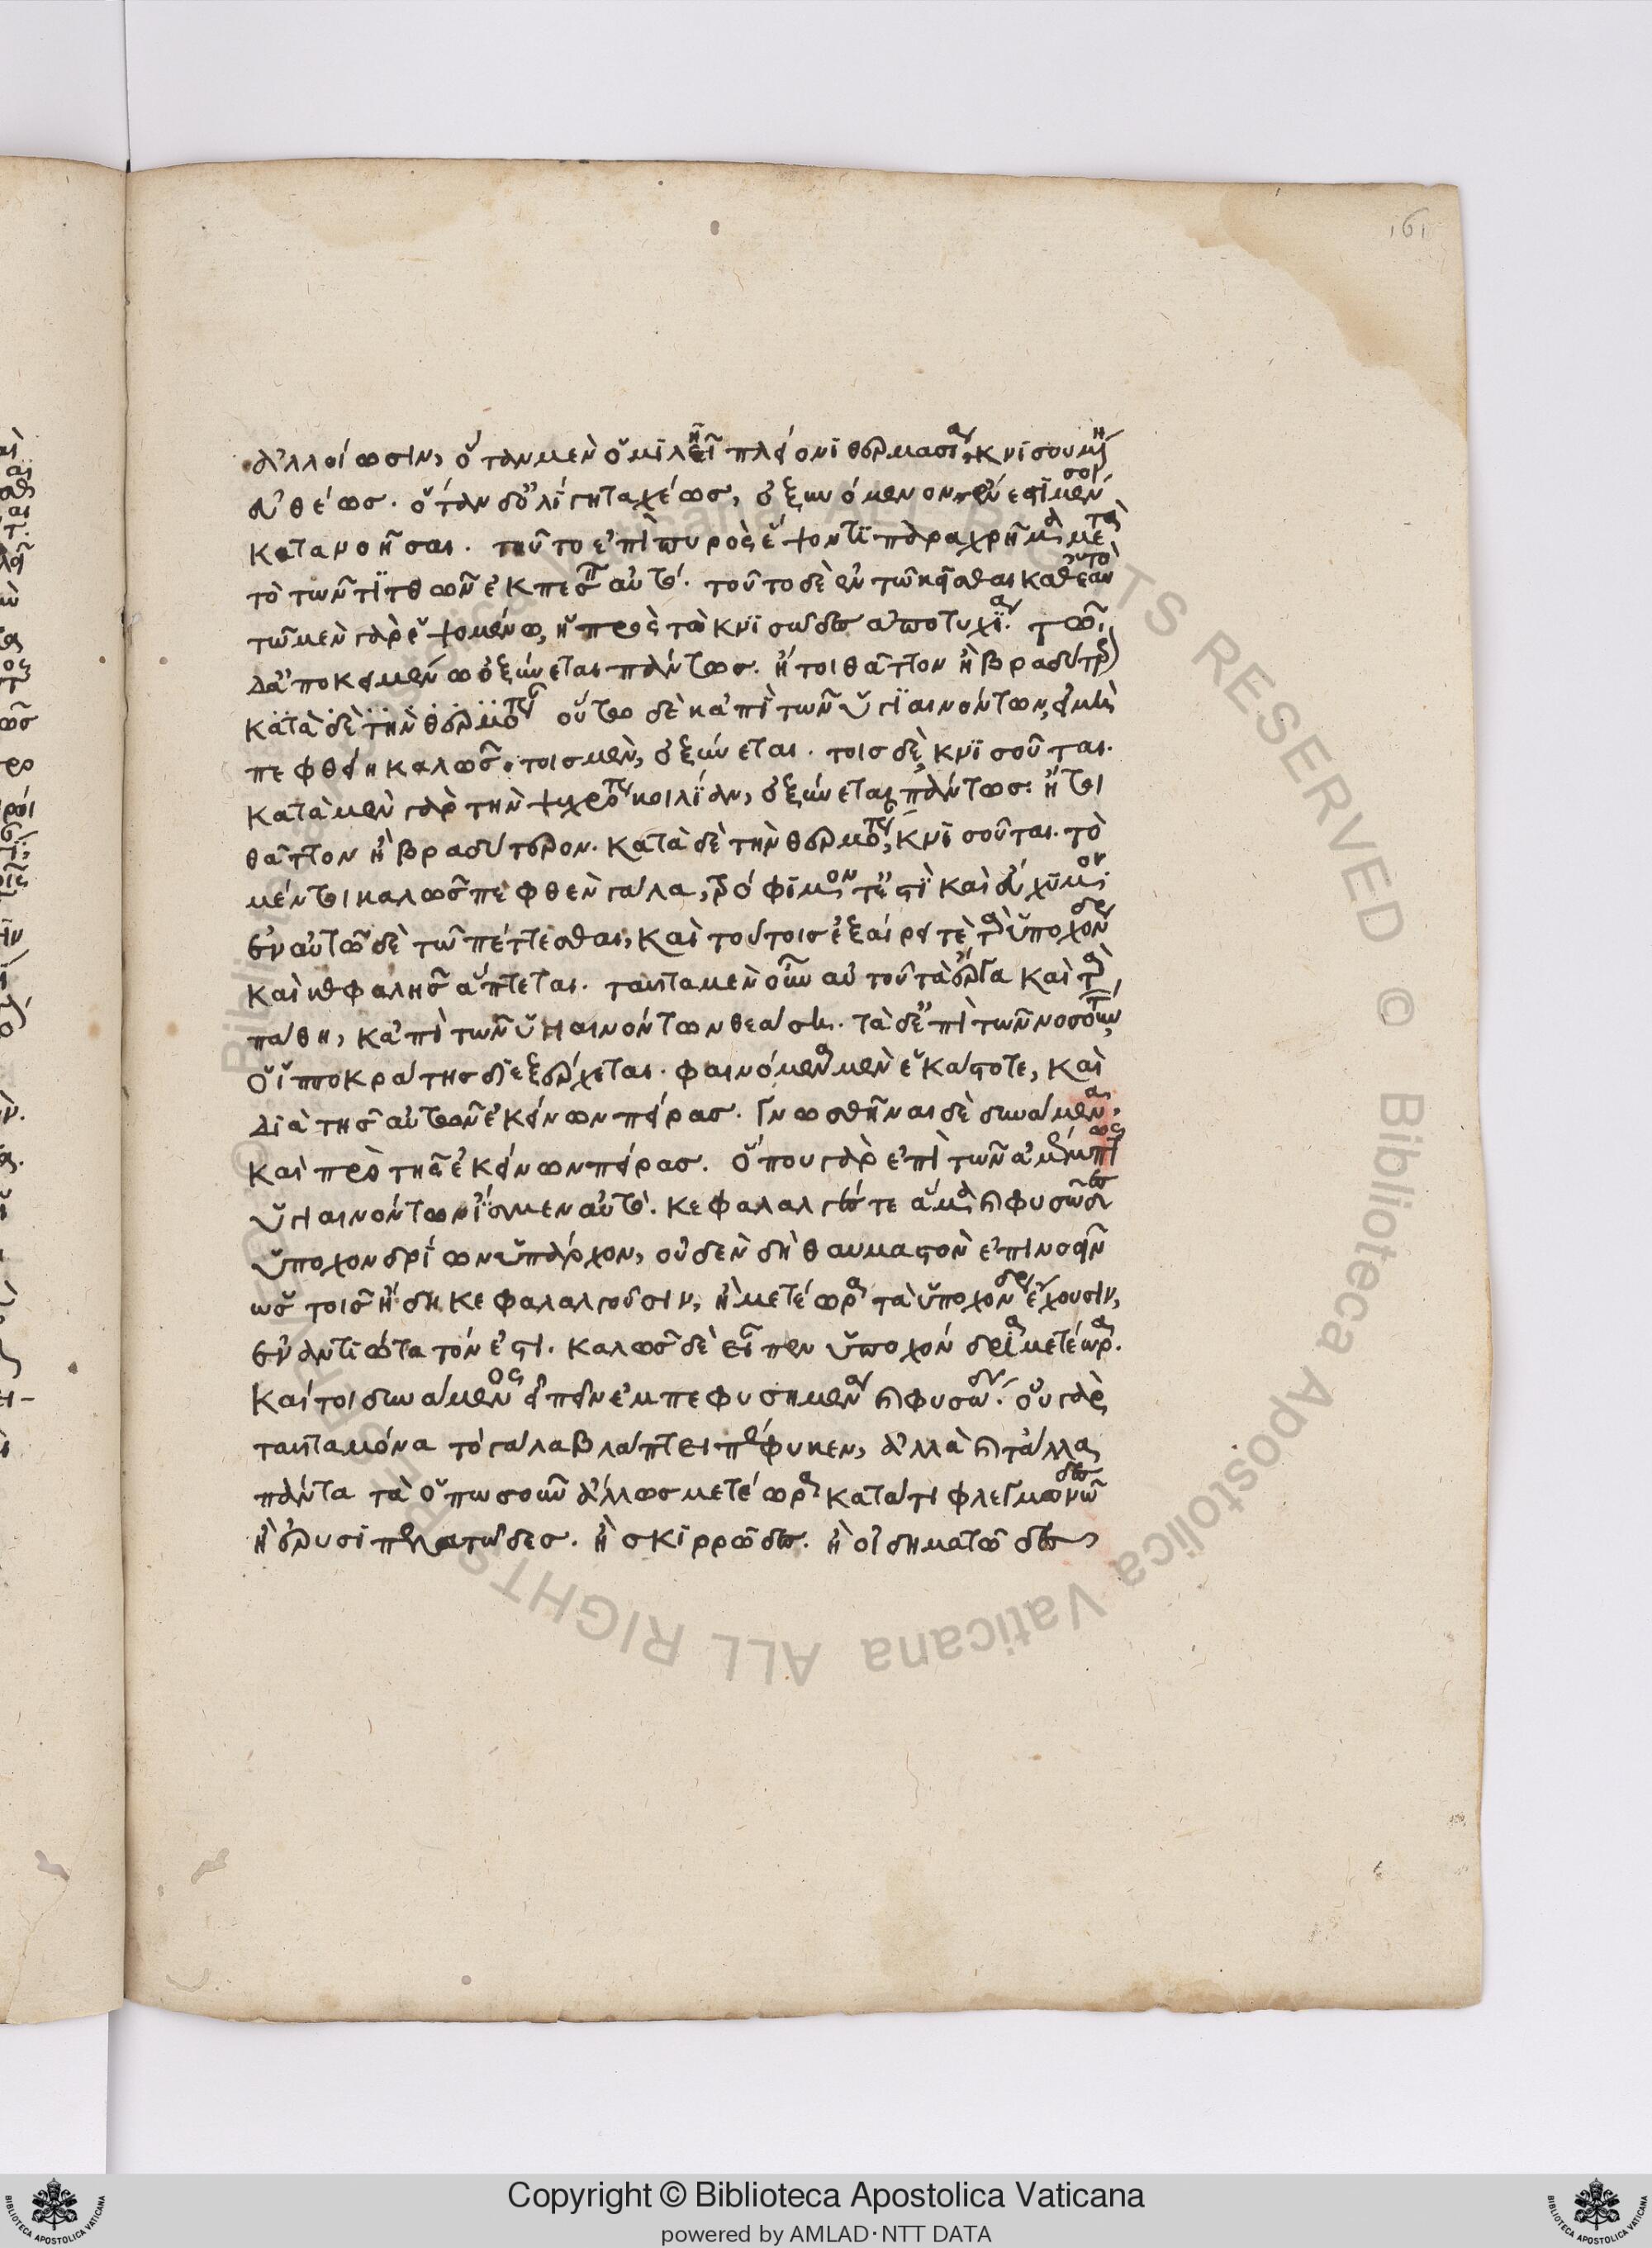 161
ἀλλοίωσιν, ὅταν μὲν ὁμιλήσῃ πλείονι θερμασίᾳ, κνισουμένη
εὐθέως. ὅταν δ' ὀλίγη ταχέως, ὀξυνόμενον. ἔνεστι μέν σοι
κατανοῆσαι. τοῦτο ἐπὶ πυρὸς ἕψοντι παραχρῆμα μετὰ
τὸ τῶν τιτθῶν ἐκπεσεῖν αὐτό. τοῦτο δὲ ἐν τῷ κεῖσθαι καθ' ἑαυτὸ
τῷ μὲν γὰρ ἑψομένῳ, ἡ πρὸς τὸ κνισῶδες ἀποτυχία. τῷ
δ' ἀποκειμένῳ ὀξύνεται πάντως. ἤτοι θᾶττον ἢ βραδύτερον
κατὰ δὲ τὴν θερμοτέραν οὕτω δὲ κἀπὶ τῶν ὑγιαινόντων, εἰ μὴ
πεφθείη καλῶς. τοῖς μὲν, ὀξύνεται. τοῖς δὲ, κνισοῦται.
κατὰ μὲν γὰρ τὴν ψυχροτέραν κοιλίαν, ὀξύνεται πάντως· ἤτοι
θᾶττον ἢ βραδύτερον. κατὰ δὲ τὴν θερμοτέραν, κνισοῦται. τὸ
μέντοι καλῶς πεφθὲν γάλα, τρόφιμόν τέ ἐστι καὶ εὔχυμον·
ἐν αὐτῷ δὲ τῷ πέττεσθαι, καὶ τούτοις ἐξαίρει τε τὰ ὑποχόνδρια
καὶ κεφαλῆς ἅπτεται. ταῦτα μὲν οὖν αὐτοῦ τὰ ἔργα καὶ τὰ
πάθη, κἀπὶ τῶν ὑγιαινόντων θεάσῃ. τὰ δ' ἐπὶ τῶν νοσούντων,
ὁ ἱπποκράτης διεξέρχεται. φαινόμενα μὲν ἑκάστοτε, καὶ
διὰ τῆς αὐτῶν ἐκείνων πείρας. γνωσθῆναι δὲ δυνάμενα,
καὶ πρὸ τῆς ἐκείνων πείρας. ὅπου γὰρ ἐπὶ τῶν ἀμέμπτως
ὑγιαινόντων ἴσμεν αὐτό. κεφαλαλγές τε ἅμα καὶ φυσῶδες
ὑποχονδρίων ὑπάρχον, οὐδὲν δὴ θαυμαστὸν ἐπινοεῖν
ὡς τοῖς ἤδη κεφαλαλγοῦσιν, ἢ μετέωρα τὰ ὑποχόνδρια ἔχουσιν,
ἐναντιώτατόν ἐστι. καλῶς δὲ εἶπεν ὑποχόνδρια μετέωρα.
καίτοι δυνάμενος εἰπεῖν ἐμπεφυσημένα καὶ φυσώδη. οὐ γὰρ
ταῦτα μόνα τὸ γάλα βλάπτει πέφυκεν, ἀλλὰ καὶ τἆλλα
πάντα τὰ ὁπωσοῦν ἄλλως μετέωρα κατά τι φλεγμονῶδες
ἢ ἐρυσιπελατῶδες. ἢ σκιρρῶδες. ἢ οἰδηματῶδες
Copyright © Biblioteca Apostolica Vaticana
powered by AMLAD·NTT DATA